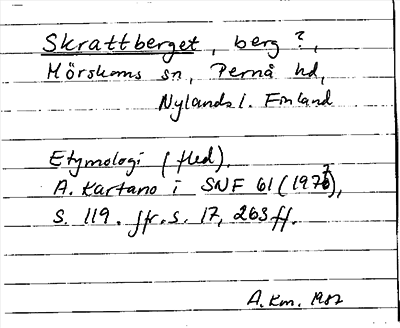 Skrattberget, berg?,
Mörskoms sn, Pernå hd,
Nylands l. Finland
Etymologi (fled).
A. Kartano i SNF 61 (1976),
s. 119. Jfr. s. 17, 263 ff.
A. Km. 1987